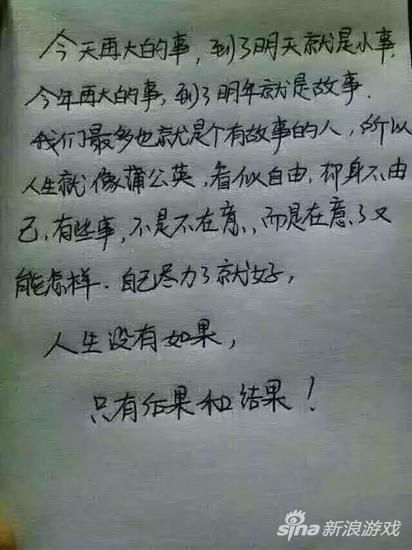 今天再大的事,到了明天就是小事.
今年再大的事,到了明年就是故事.
我们最多也就是个有故事的人,所以
人生就像蒲公英,看似自由,却身不由
己,有些事,不是不在意,而是在意了又
能怎样.自己尽力了就好,
人生没有如果,
只有后果和结果!
sina 新浪游戏